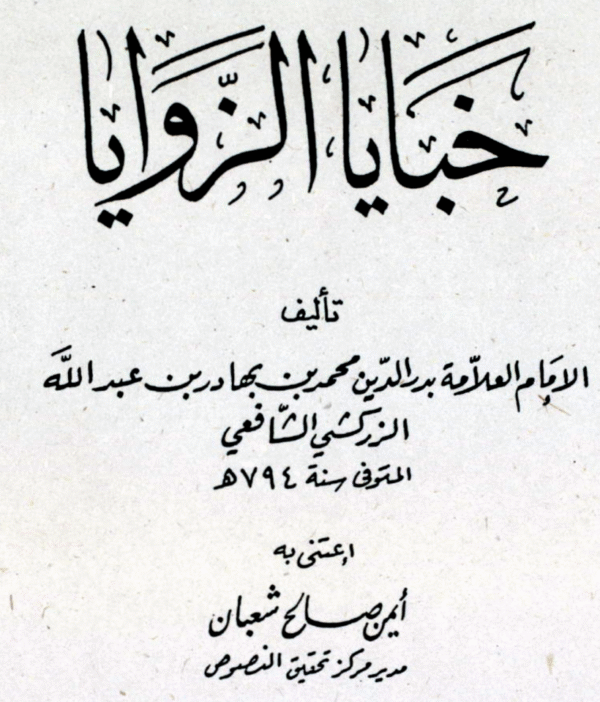 خبايا الزَّوَايا
تأليف
الامَام العلاّمة بدر الدّين محمد بن بهادر بن عبد اللّه
الزركشي الشّافعي
المتوفى سنة ٧٩٤ هـ
إعتنى به
أيمن صالح شعبان
مدير مركز تحقيق النصوص